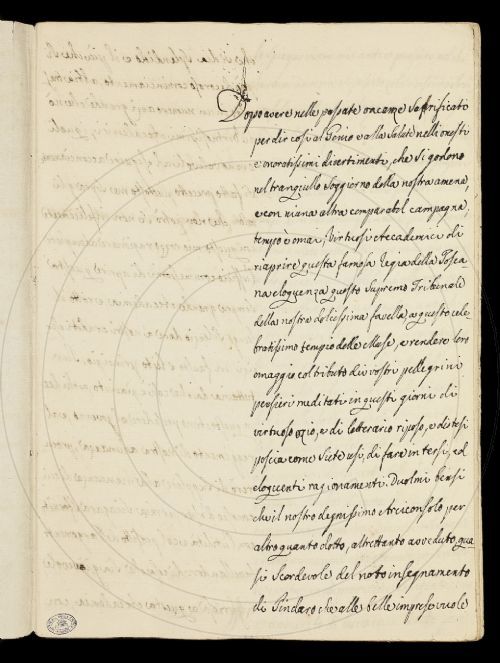 Dopo avere nelle passate vacanze sagrificato
per dir così al Genio e alla Salute nelli onesti
e onoratissimi divertimenti, che si godono
nel tranquillo soggiorno della nostra amena,
e con niuna altra comparabil campagna,
tempo è omai, Virtuosi Accademici di
riaprire questa famosa Regia della Tosca-
na eloquenza questo supremo Tribunale
della nostra dolcissima favella a questo cele-
bratissimo tempio delle Muse, e rendere loro
omaggio col tributo dei vostri pellegrini
pensieri meditati in questi giorni di
virtuoso ozio, e di letterario riposo, e distesi
poscia come siete usi, di fare in tersi, ed
eloquenti ragionamenti. Duolmi bensì
che il nostro degnissimo Arciconsolo, per
altro quanto dotto, altrettanto avveduto, qua
si scordevole del noto insegnamento
di Pindaro che alle belle imprese vuole